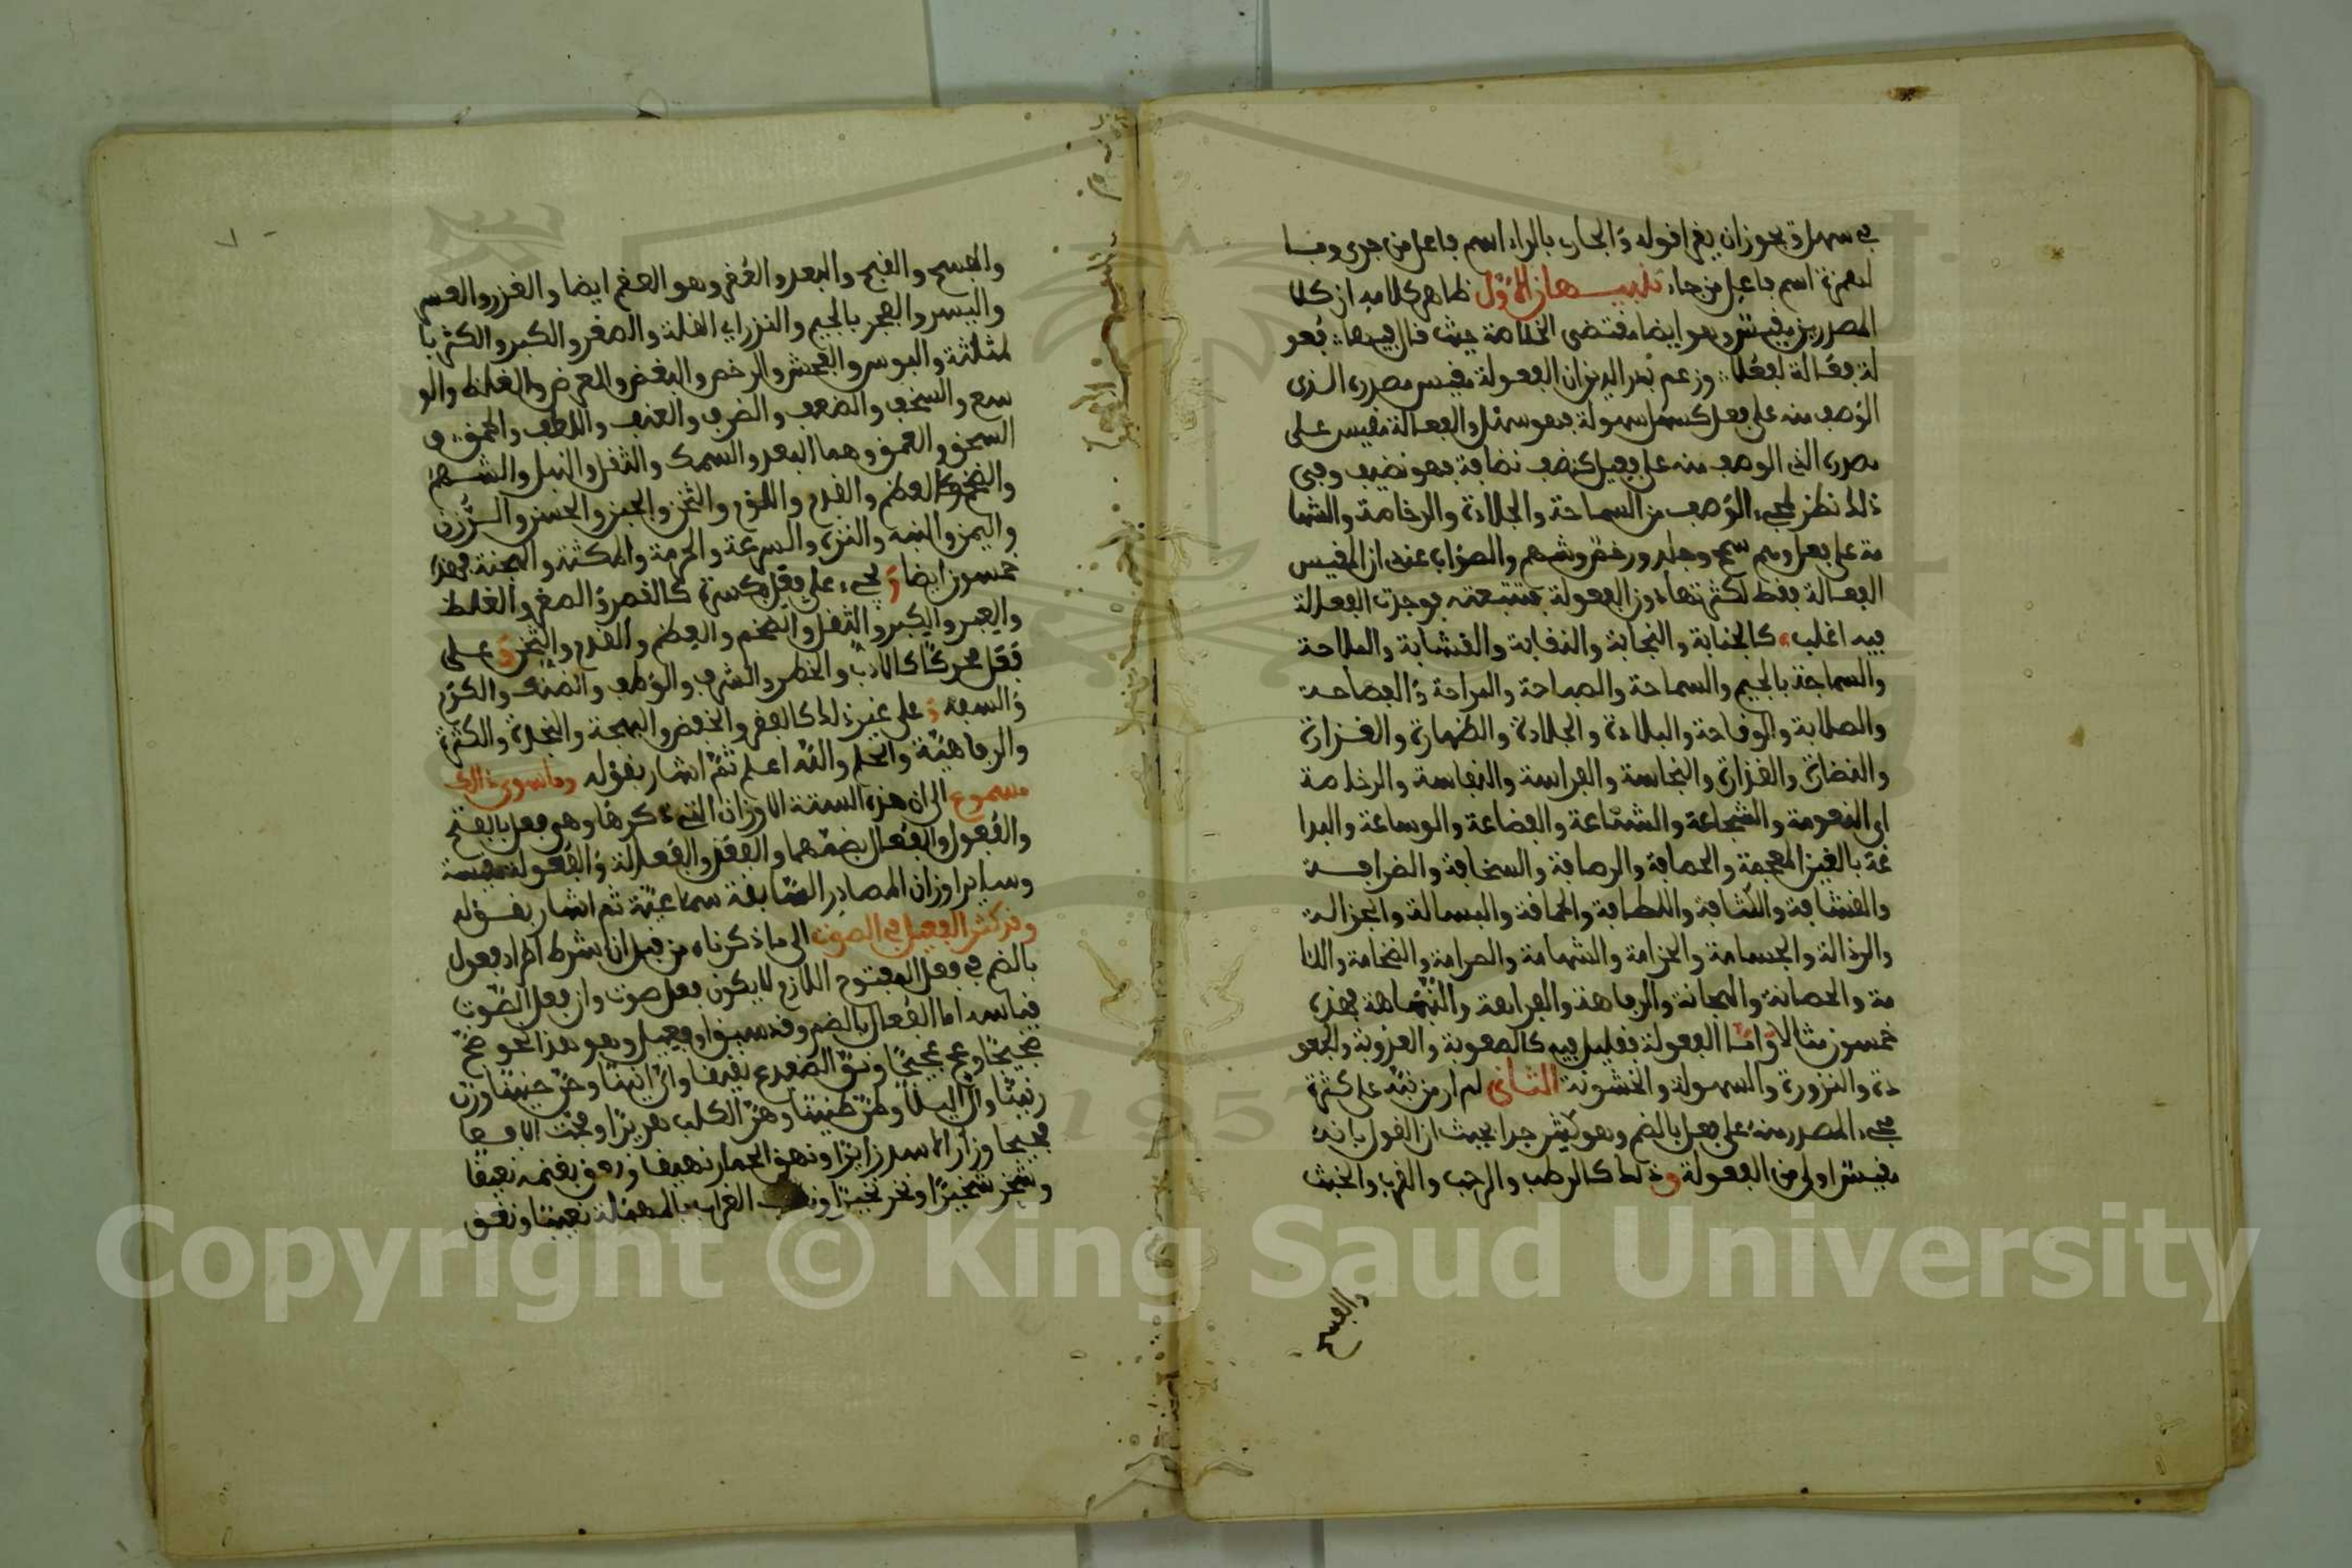 في سهل ويجوز ان يقرا قوله والجار بالراء اسم فاعل من جرى وبا
لهمزة اسم فاعل من جاء تنبيهان الأول ظاهر كلامه ان كلا
المصدرين مقيس وهو ايضا مقتضى الخلاصة حيث قال فيها فعو
لة فعالة لفعلا وزعم بدر الدين ان الفعولة مقيس مصدر الذي
الوصف منه على فعل كسهل سهولة فهو سهل والفعالة مقيس على
مصدر الذي الوصف منه على فعيل كنضف نضافة فهو نضيف وفي
ذلك نظر لمجيء الوصف من السماحة والجلادة والرخامة والشها
مة على فعل وهم سمح وجلد ورخم وشهم والصواب عندي ان المقيس
الفعالة فقط لكثرتها دون الفعولة فتتبعته فوجدت الفعالة
فيه اغلب كالجنابة والنجابة والنقابة والقشابة والملاحة
والسماجة بالجيم والسماحة والصباحة والبراحة والفصاحة
والصلابة والوقاحة والبلادة والجلادة والظهارة والغزارة
والنضارة والقذارة والنجاسة والفراسة والنفاسة والرخاصة
اي النعومة والشجاعة والشناعة والفضاعة والوساعة والبدا
غة بالغين المعجمة والحصافة والرصافة والسخافة والضرافة
والقشافة والكثافة واللطافة والحماقة والبسالة والجزالة
والرذالة والجسامة والحزامة والشهامة والصرامة والضخامة واللا
مة والحصانة والهجانة والرفاهة والفراهة والنباهة فهذه
خمسون مثالا واما الفعولة فقليل فيه كالصعوبة والعذوبة والجعو
دة والنزورة والسهولة والخشونة الثاني لم ار من نبه على كثرة
مجيء المصدر منه على فعل بالضم وهو كثير جدا بحيث ان القول بانه
مقيس اولى من الفعولة وذلك كالرطب والرحب والقرب والخبث
والفسح
والفسح والقبح والبعد والفقم وهو العضم ايضا والغزر والعسر
واليسر والفجر بالجيم والنزر اي القلة والصغر والكبر والكثر با
لمثلثة والبوس والفحش والرخص والبغض والعرض والغلظ والو
سع والسخف والضعف والضرف والعنف واللطف والحمق و
السحق والعمق وهما البعد والسمك والثقل والنبل والشهم
والضخم والعظم والقدم واللوم والثخن والجبن والحسن والرزن
واليمن والنبه والنزه والسرعة والحرمة والمكثة والهجنة فهذه
خمسون ايضا ويجيء على فعل بكسرة كالقصر والصغر والغلظ
والعبر والكبر والثقل والضخم والعظم والقدم والثخن وعلى
فعل محركا كالادب والخطر والشرف والوطف والضنك والكرم
والسفه وعلى غير ذلك كالفقر والخفض والبهجة والنجدة والكثرة
والرفاهية والحلم والله اعلم ثم اشار بقوله وما سوى ذاك
مسموع الى ان هذه الستة الاوزان التي ذكرها وهو فعل بالفتح
والفعول والفعال بضمهما والفعل والفعالة والفعولة مقيسة
وساير اوزان المصادر السابقة سماعية ثم اشار بقوله
وقد كثر الفعيل في الصوت الى ما ذكرناه من قبل ان شرط اطراد فعول
بالضم في فعل المفتوح اللازم لا يكون فعل صوت وان فعل الصوت
قياسه اما الفعال بالضم وقد سبق او فعيل وهو هذا نحو ضج
ضجيجا وعج عجيجا ونق الضفدع نقيقا وان انينا وحن حنينا ورن
رنينا وال اليلا وطن طنينا وهر الكلب هريرا وفحت الافعا
فحيحا وزار الاسد زايرا ونهق الحمار نهيقا ونعق بغنمه نعيقا
وشخر شخيرا ونخر نخيرا الغراب بالمهملة نعيبا ونغق
Copyright © King Saud University
1957